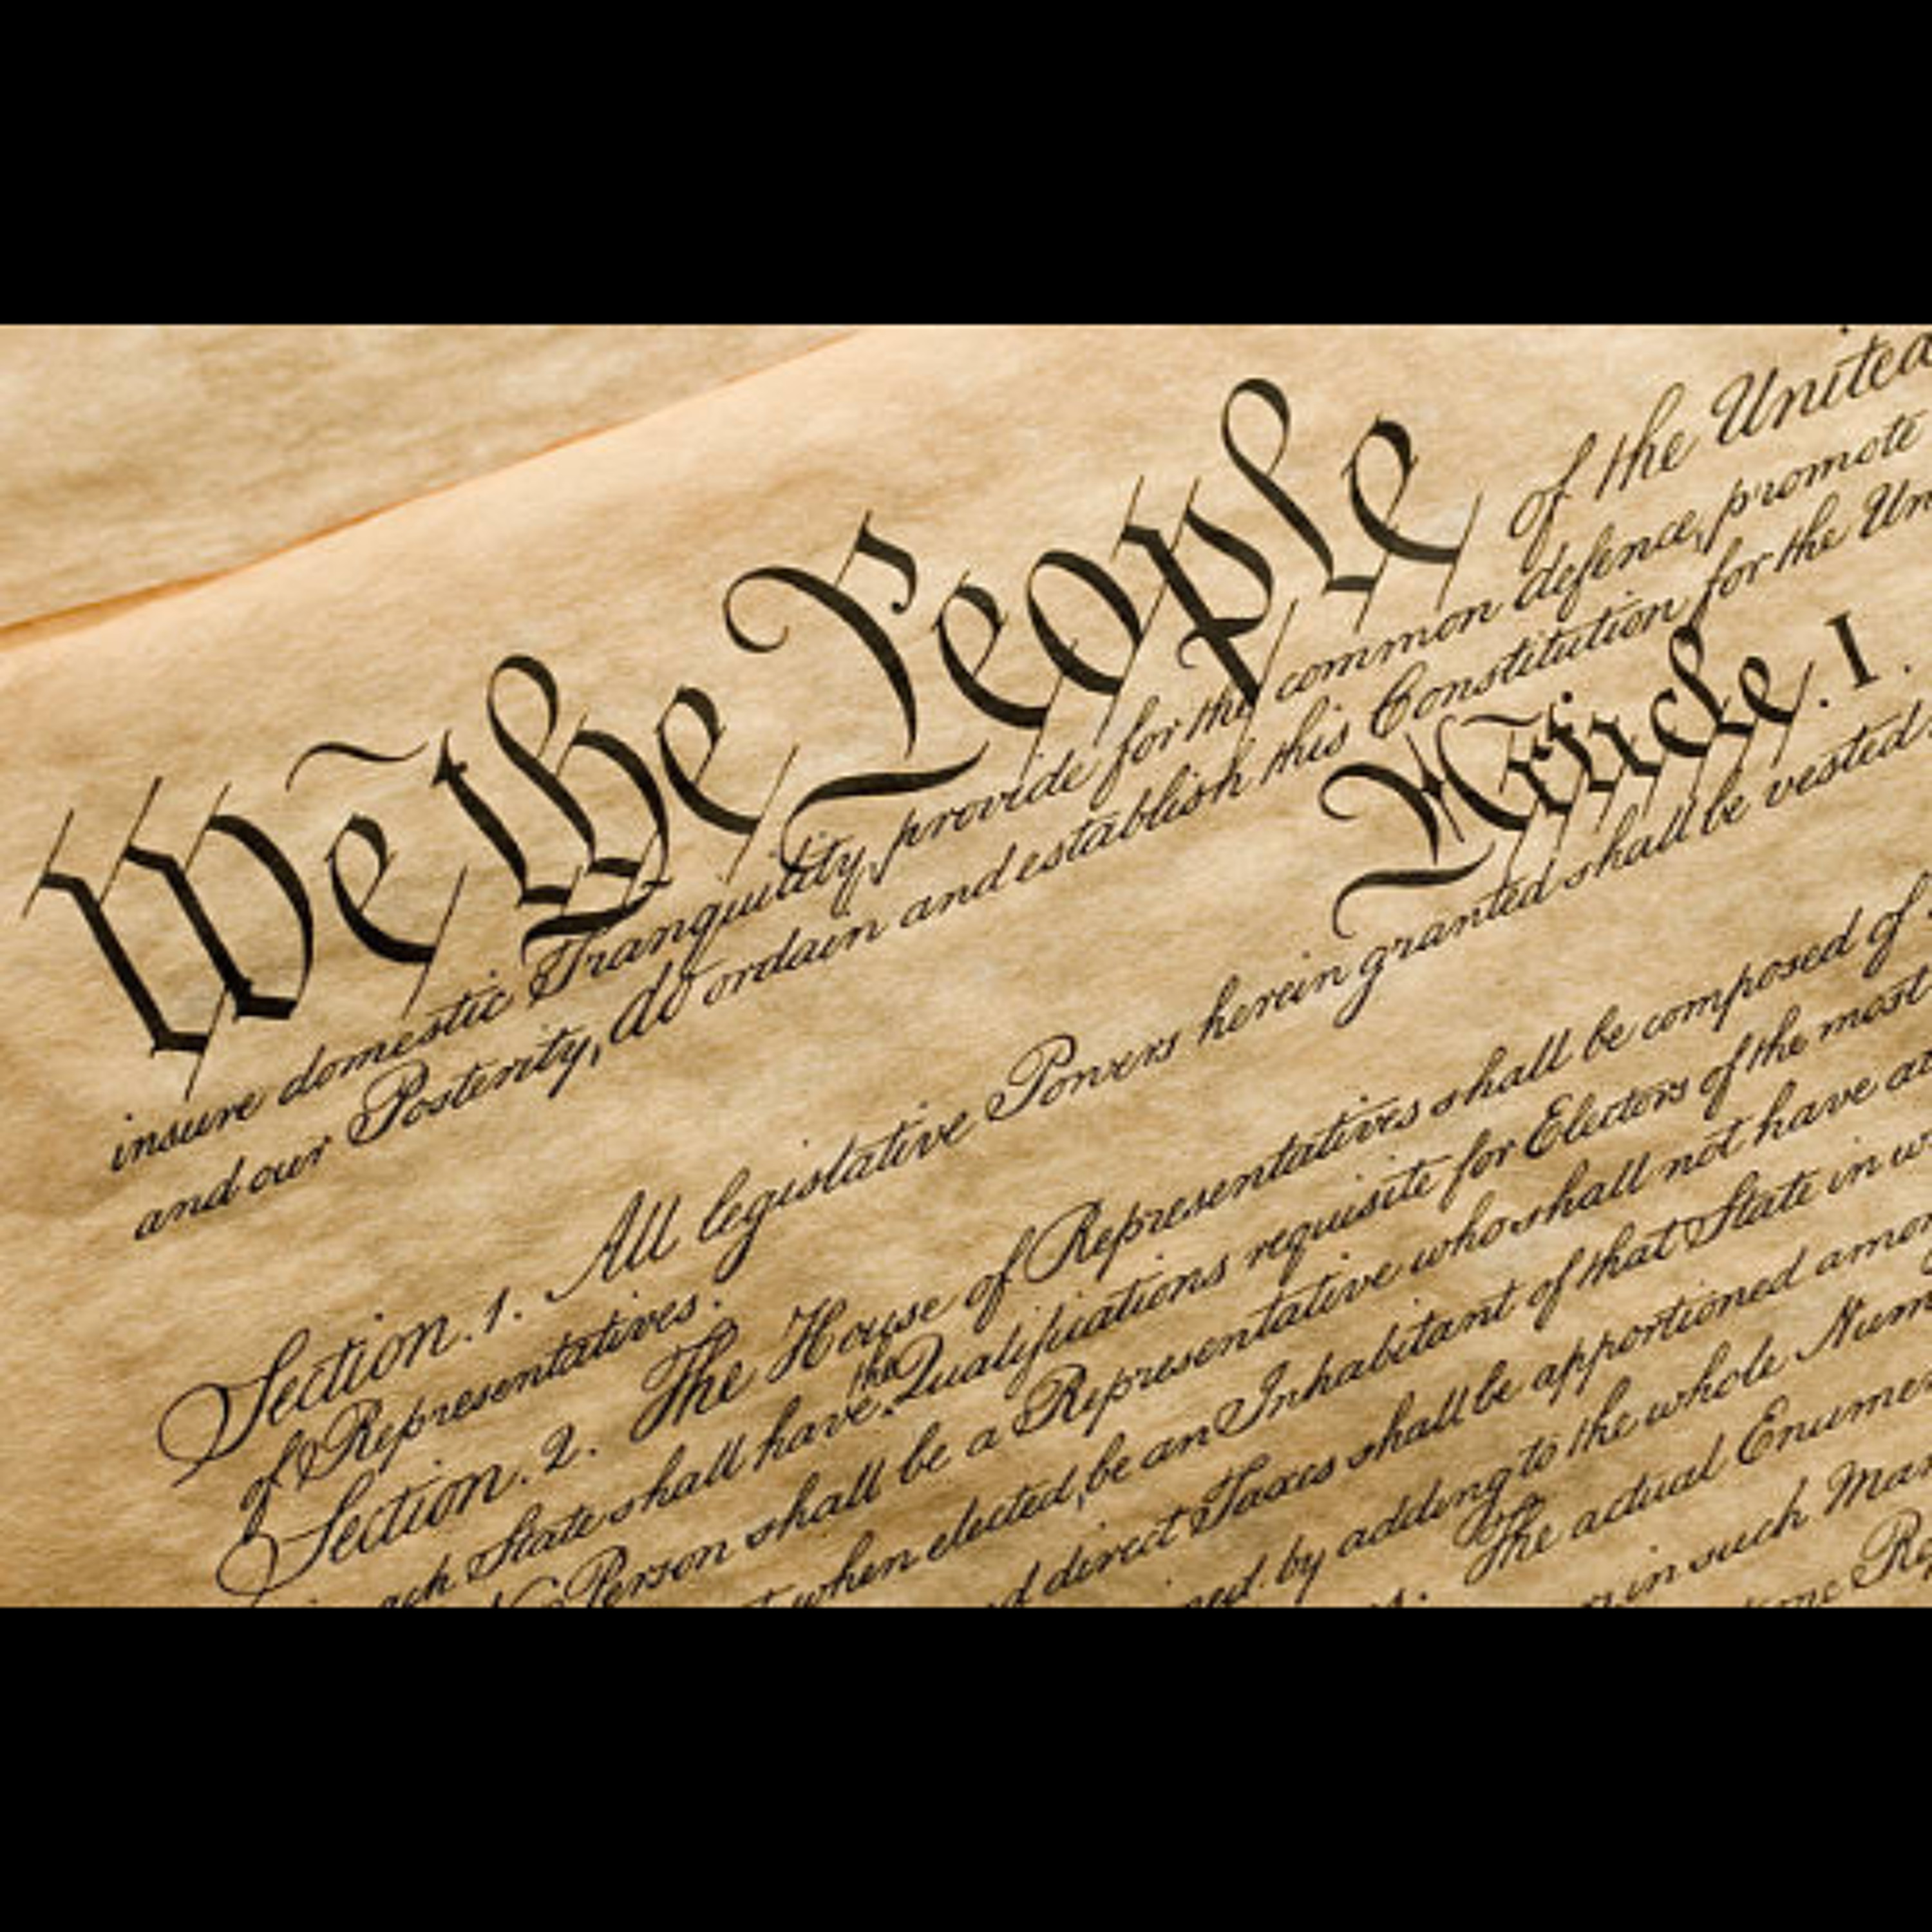 We the People of the United
insure domestic Tranquility, provide for the common defence, promote
and our Posterity, do ordain and establish this Constitution for the Un
Article. I.
Section. 1. All legislative Powers herein granted shall be vested
of Representatives.
Section. 2. The House of Representatives shall be composed of
each State shall have the Qualifications requisite for Electors of the most
No Person shall be a Representative who shall not have at
when elected, be an Inhabitant of that State in w
direct Taxes shall be apportioned amon
by adding to the whole Num
The actual Enumer
in such Man